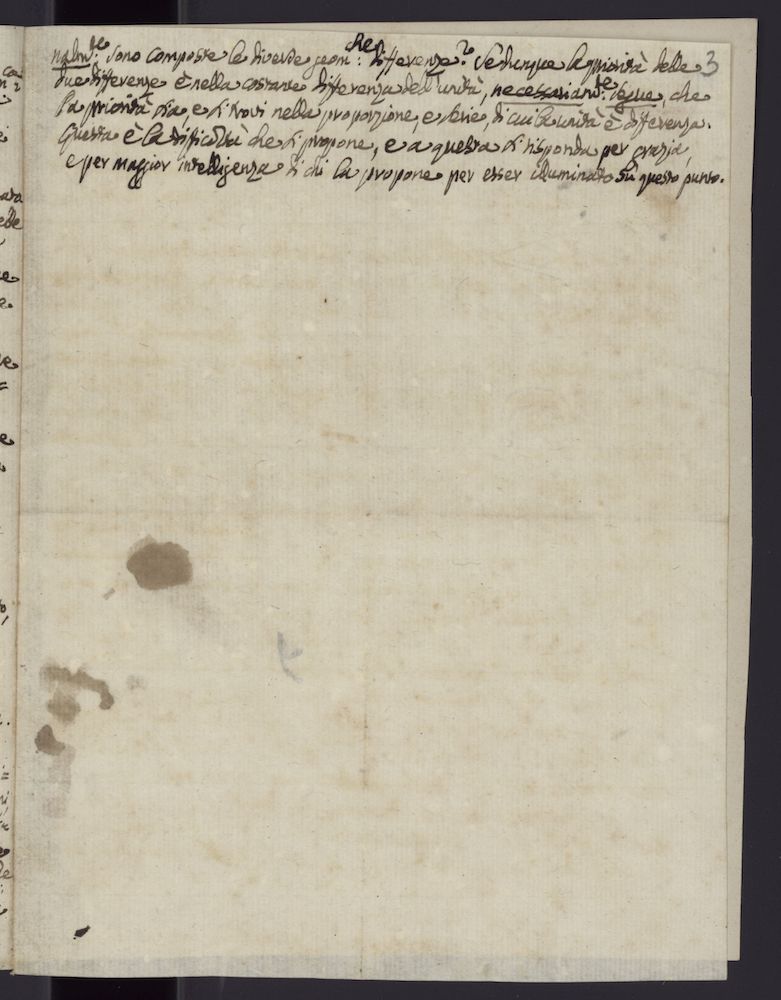 nalm:te sono composte le diverse geom:che differenze? Se dunque la priorità delle 3
due differenze è nella costante differenza dell'unità, necessariam:te segue, che
la priorità sia, e si trovi nella proporzione, e serie, di cui l'unità è differenza.
Questa è la difficoltà che si propone, e a questa si risponda per grazia,
e per maggior intelligenza di chi la propone per esser illuminato su questo punto.